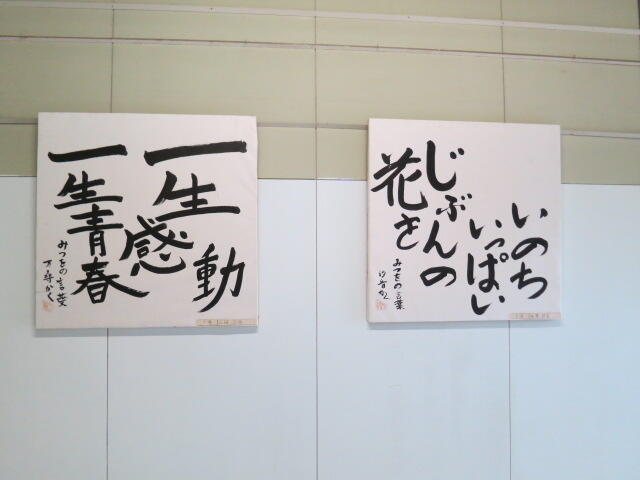 一生
感動
一生青春
みつをの言葉
いのち
いっぱい
じぶんの
花を
みつをの言葉